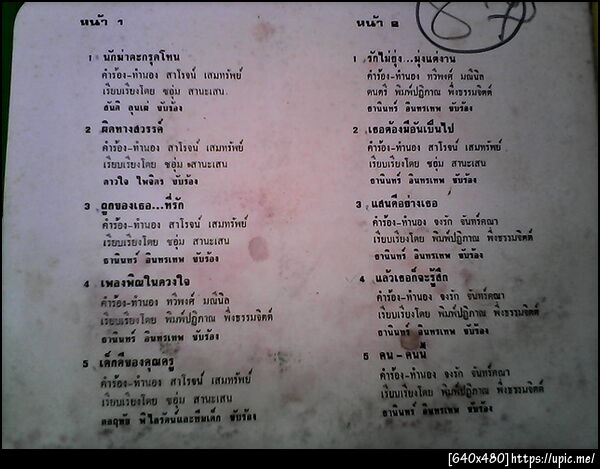 หน้า 1
1 นักฆ่าตะกรุดโทน
คำร้อง-ทำนอง สาโรจน์ เสมทรัพย์
เรียบเรียงโดย ชอุ่ม สานะเสน
สันติ ลุนเผ่ ขับร้อง
2 ผิดทางสวรรค์
คำร้อง-ทำนอง สาโรจน์ เสมทรัพย์
เรียบเรียงโดย ชอุ่ม สานะเสน
ดาวใจ ไพจิตร ขับร้อง
3 ลูกของเธอ...ที่รัก
คำร้อง-ทำนอง สาโรจน์ เสมทรัพย์
เรียบเรียงโดย ชอุ่ม สานะเสน
ธานินทร์ อินทรเทพ ขับร้อง
4 เพลงพิณในดวงใจ
คำร้อง-ทำนอง ทวีพงศ์ มณีนิล
เรียบเรียงโดย พิมพ์ปฏิภาณ พึ่งธรรมจิตต์
ธานินทร์ อินทรเทพ ขับร้อง
5 เด็กดีของคุณครู
คำร้อง-ทำนอง สาโรจน์ เสมทรัพย์
เรียบเรียงโดย ชอุ่ม สานะเสน
ดลฤทัย พิไลรัตน์และทีมเด็ก ขับร้อง
หน้า ๒
87
1 รักไม่ยุ่ง...มุ่งแต่งาน
คำร้อง-ทำนอง ทวีพงศ์ มณีนิล
ดนตรี พิมพ์ปฏิภาณ พึ่งธรรมจิตต์
ธานินทร์ อินทรเทพ ขับร้อง
2 เธอต้องมีอันเป็นไป
คำร้อง-ทำนอง สาโรจน์ เสมทรัพย์
เรียบเรียงโดย ชอุ่ม สานะเสน
ธานินทร์ อินทรเทพ ขับร้อง
3 แสนดีอย่างเธอ
คำร้อง-ทำนอง จงรัก จันทร์คณา
เรียบเรียงโดย พิมพ์ปฏิภาณ พึ่งธรรมจิตต์
ธานินทร์ อินทรเทพ ขับร้อง
4 แล้วเธอก็จะรู้สึก
คำร้อง-ทำนอง จงรัก จันทร์คณา
เรียบเรียงโดย พิมพ์ปฏิภาณ พึ่งธรรมจิตต์
ธานินทร์ อินทรเทพ ขับร้อง
5 คน - คนนี้
คำร้อง-ทำนอง จงรัก จันทร์คณา
เรียบเรียงโดย พิมพ์ปฏิภาณ พึ่งธรรมจิตต์
ธานินทร์ อินทรเทพ ขับร้อง
[640x480]https://upic.me/